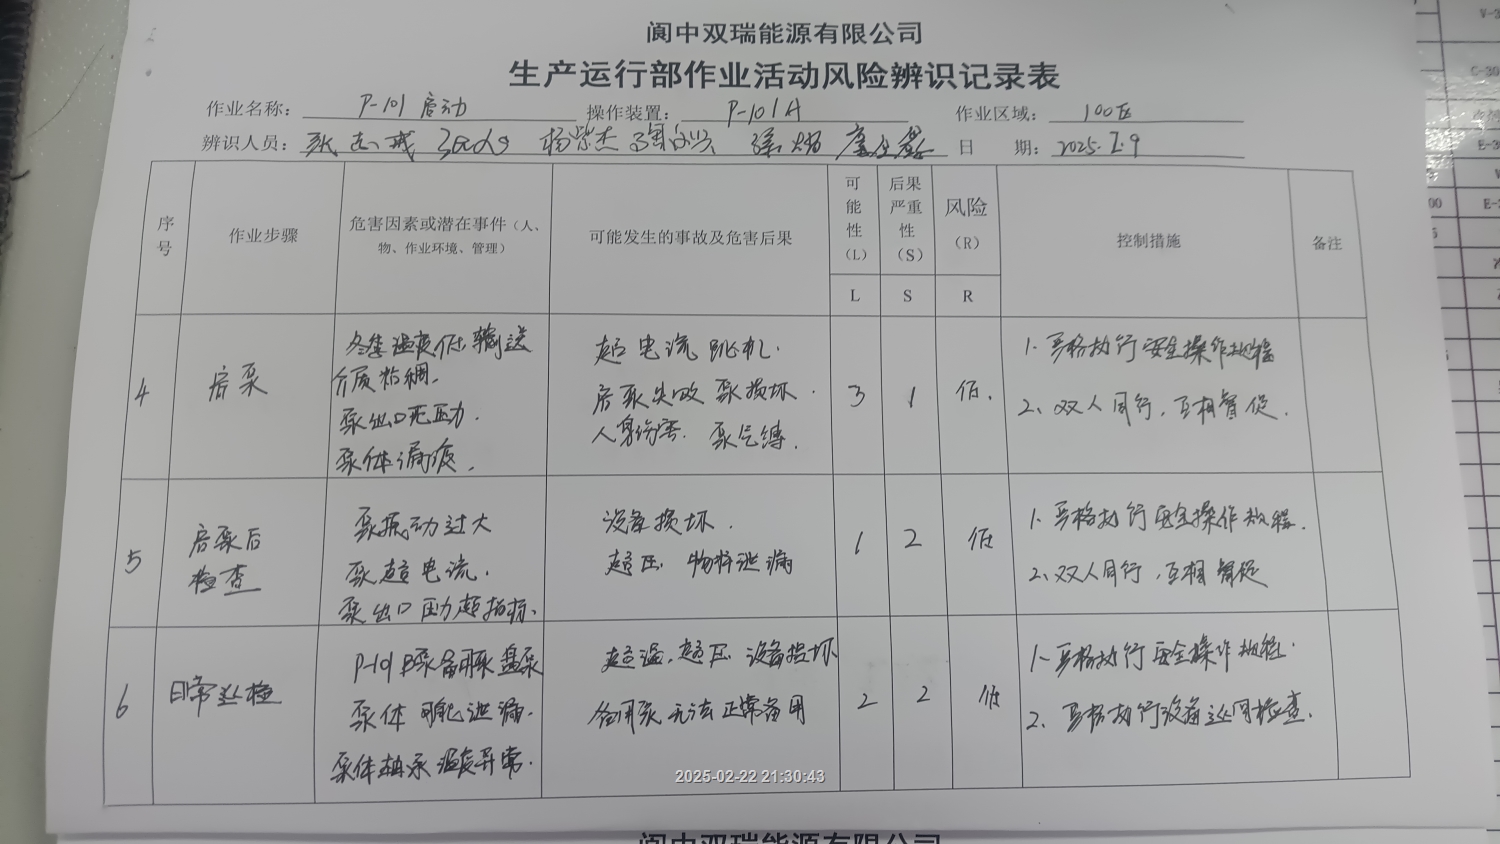 阆中双瑞能源有限公司
生产运行部作业活动风险辨识记录表
作业名称： P-101 启动 操作装置： P-101A 作业区域： 100区
辨识人员： 杨紫杰 日 期： 2025.2.9
序号 作业步骤 危害因素或潜在事件（人、物、作业环境、管理） 可能发生的事故及危害后果 可能性（L） 后果严重性（S） 风险（R） 控制措施 备注
L S R
4 启泵
冬季温度低输送
介质粘稠.
泵出口无压力.
泵体漏液.
超电流跳机.
启泵失败 泵损坏.
人身伤害. 泵气缚.
3 1 低.
1. 严格执行安全操作规程
2、双人同行，互相督促.
5 启泵后
检查
泵振动过大
泵超电流.
泵出口压力超指标.
设备损坏.
超压 物料泄漏
1 2 低
1. 严格执行安全操作规程.
2、双人同行，互相督促
6 日常巡检
P-101B泵备用泵盘泵
泵体可能泄漏.
泵体轴承温度异常.
超温，超压 设备损坏
备用泵无法正常备用
2 2 低
1. 严格执行安全操作规程.
2. 严格执行设备巡回检查.
2025-02-22 21:30:43
阆中双瑞能源有限公司